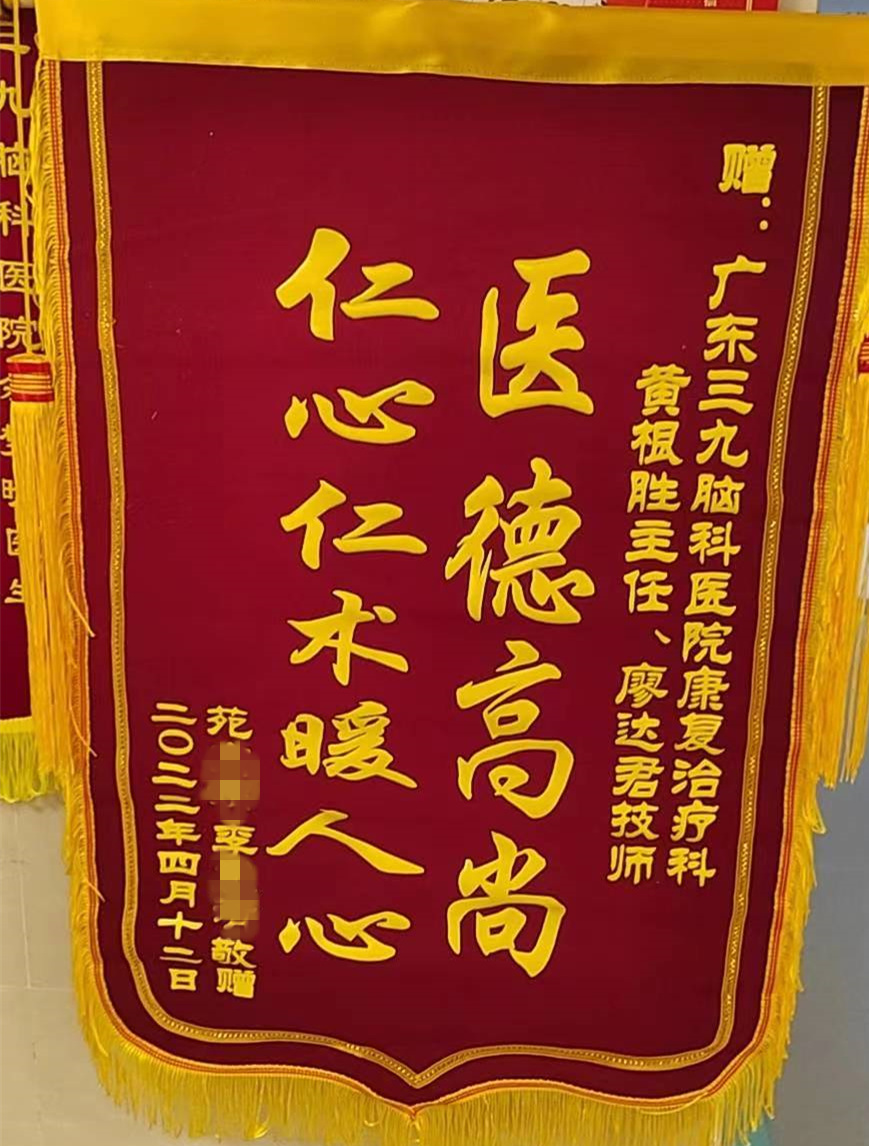 赠：广东三九脑科医院康复治疗科
黄根胜主任、廖达君技师
医德高尚
仁心仁术暖人心
苑 李 敬赠
二〇二二年四月十二日
三九脑科医院